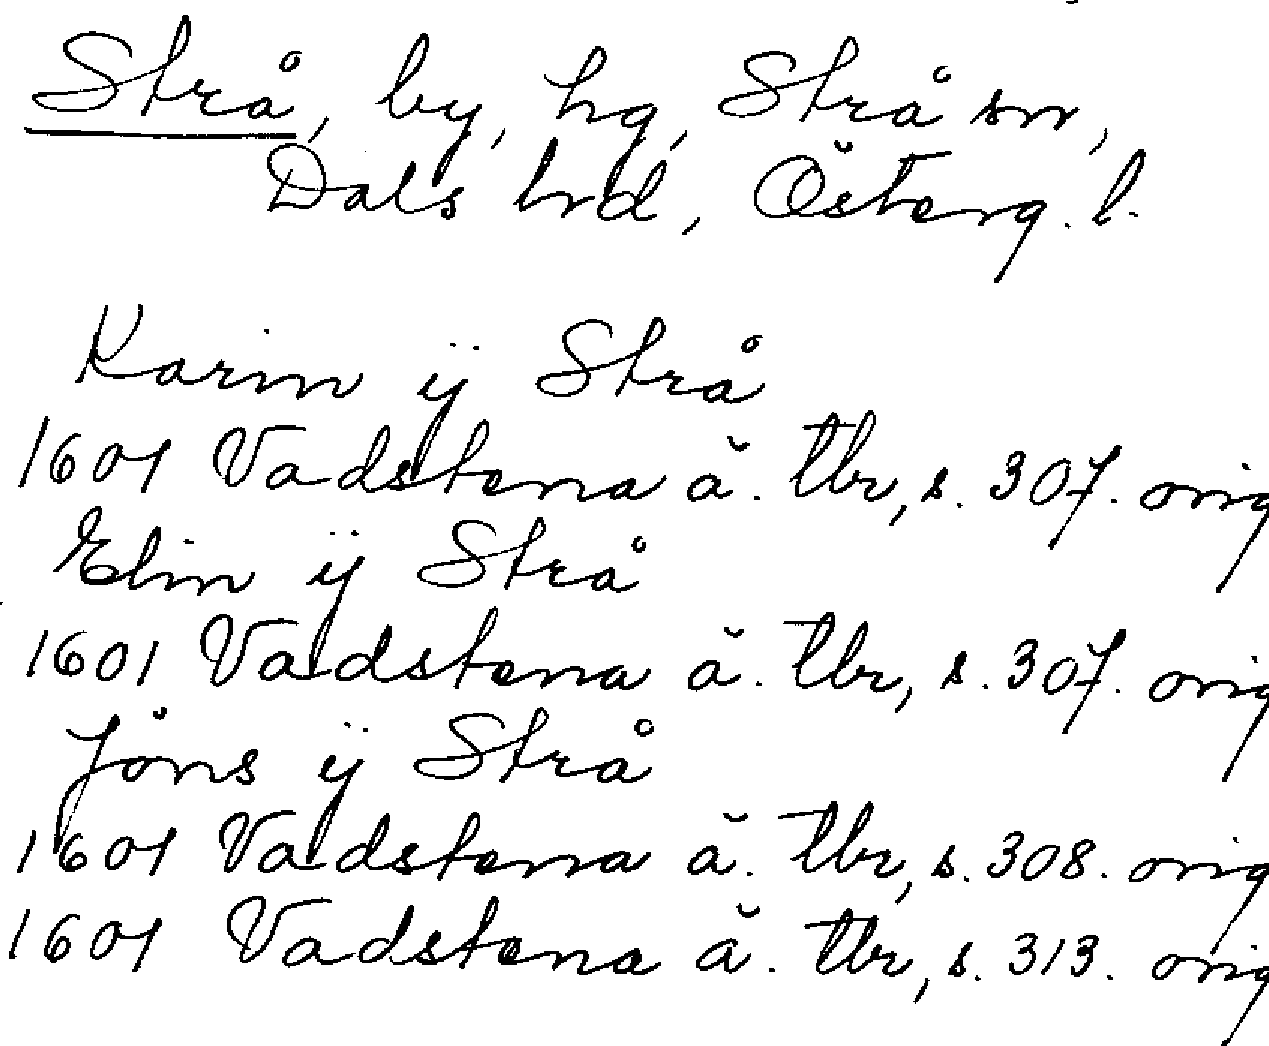 Strå, by, hg, Strå sn,
Dals hrd, Österg. l.
Karin ÿ Strå
1601 Vadstena ä. tbr, s. 307. orig
Elin ÿ Strå
1601 Vadstena ä. tbr, s. 307. orig
Jöns ÿ Strå
1601 Vadstena ä. tbr, s. 308. orig
1601 Vadstena ä. tbr, s. 313. orig